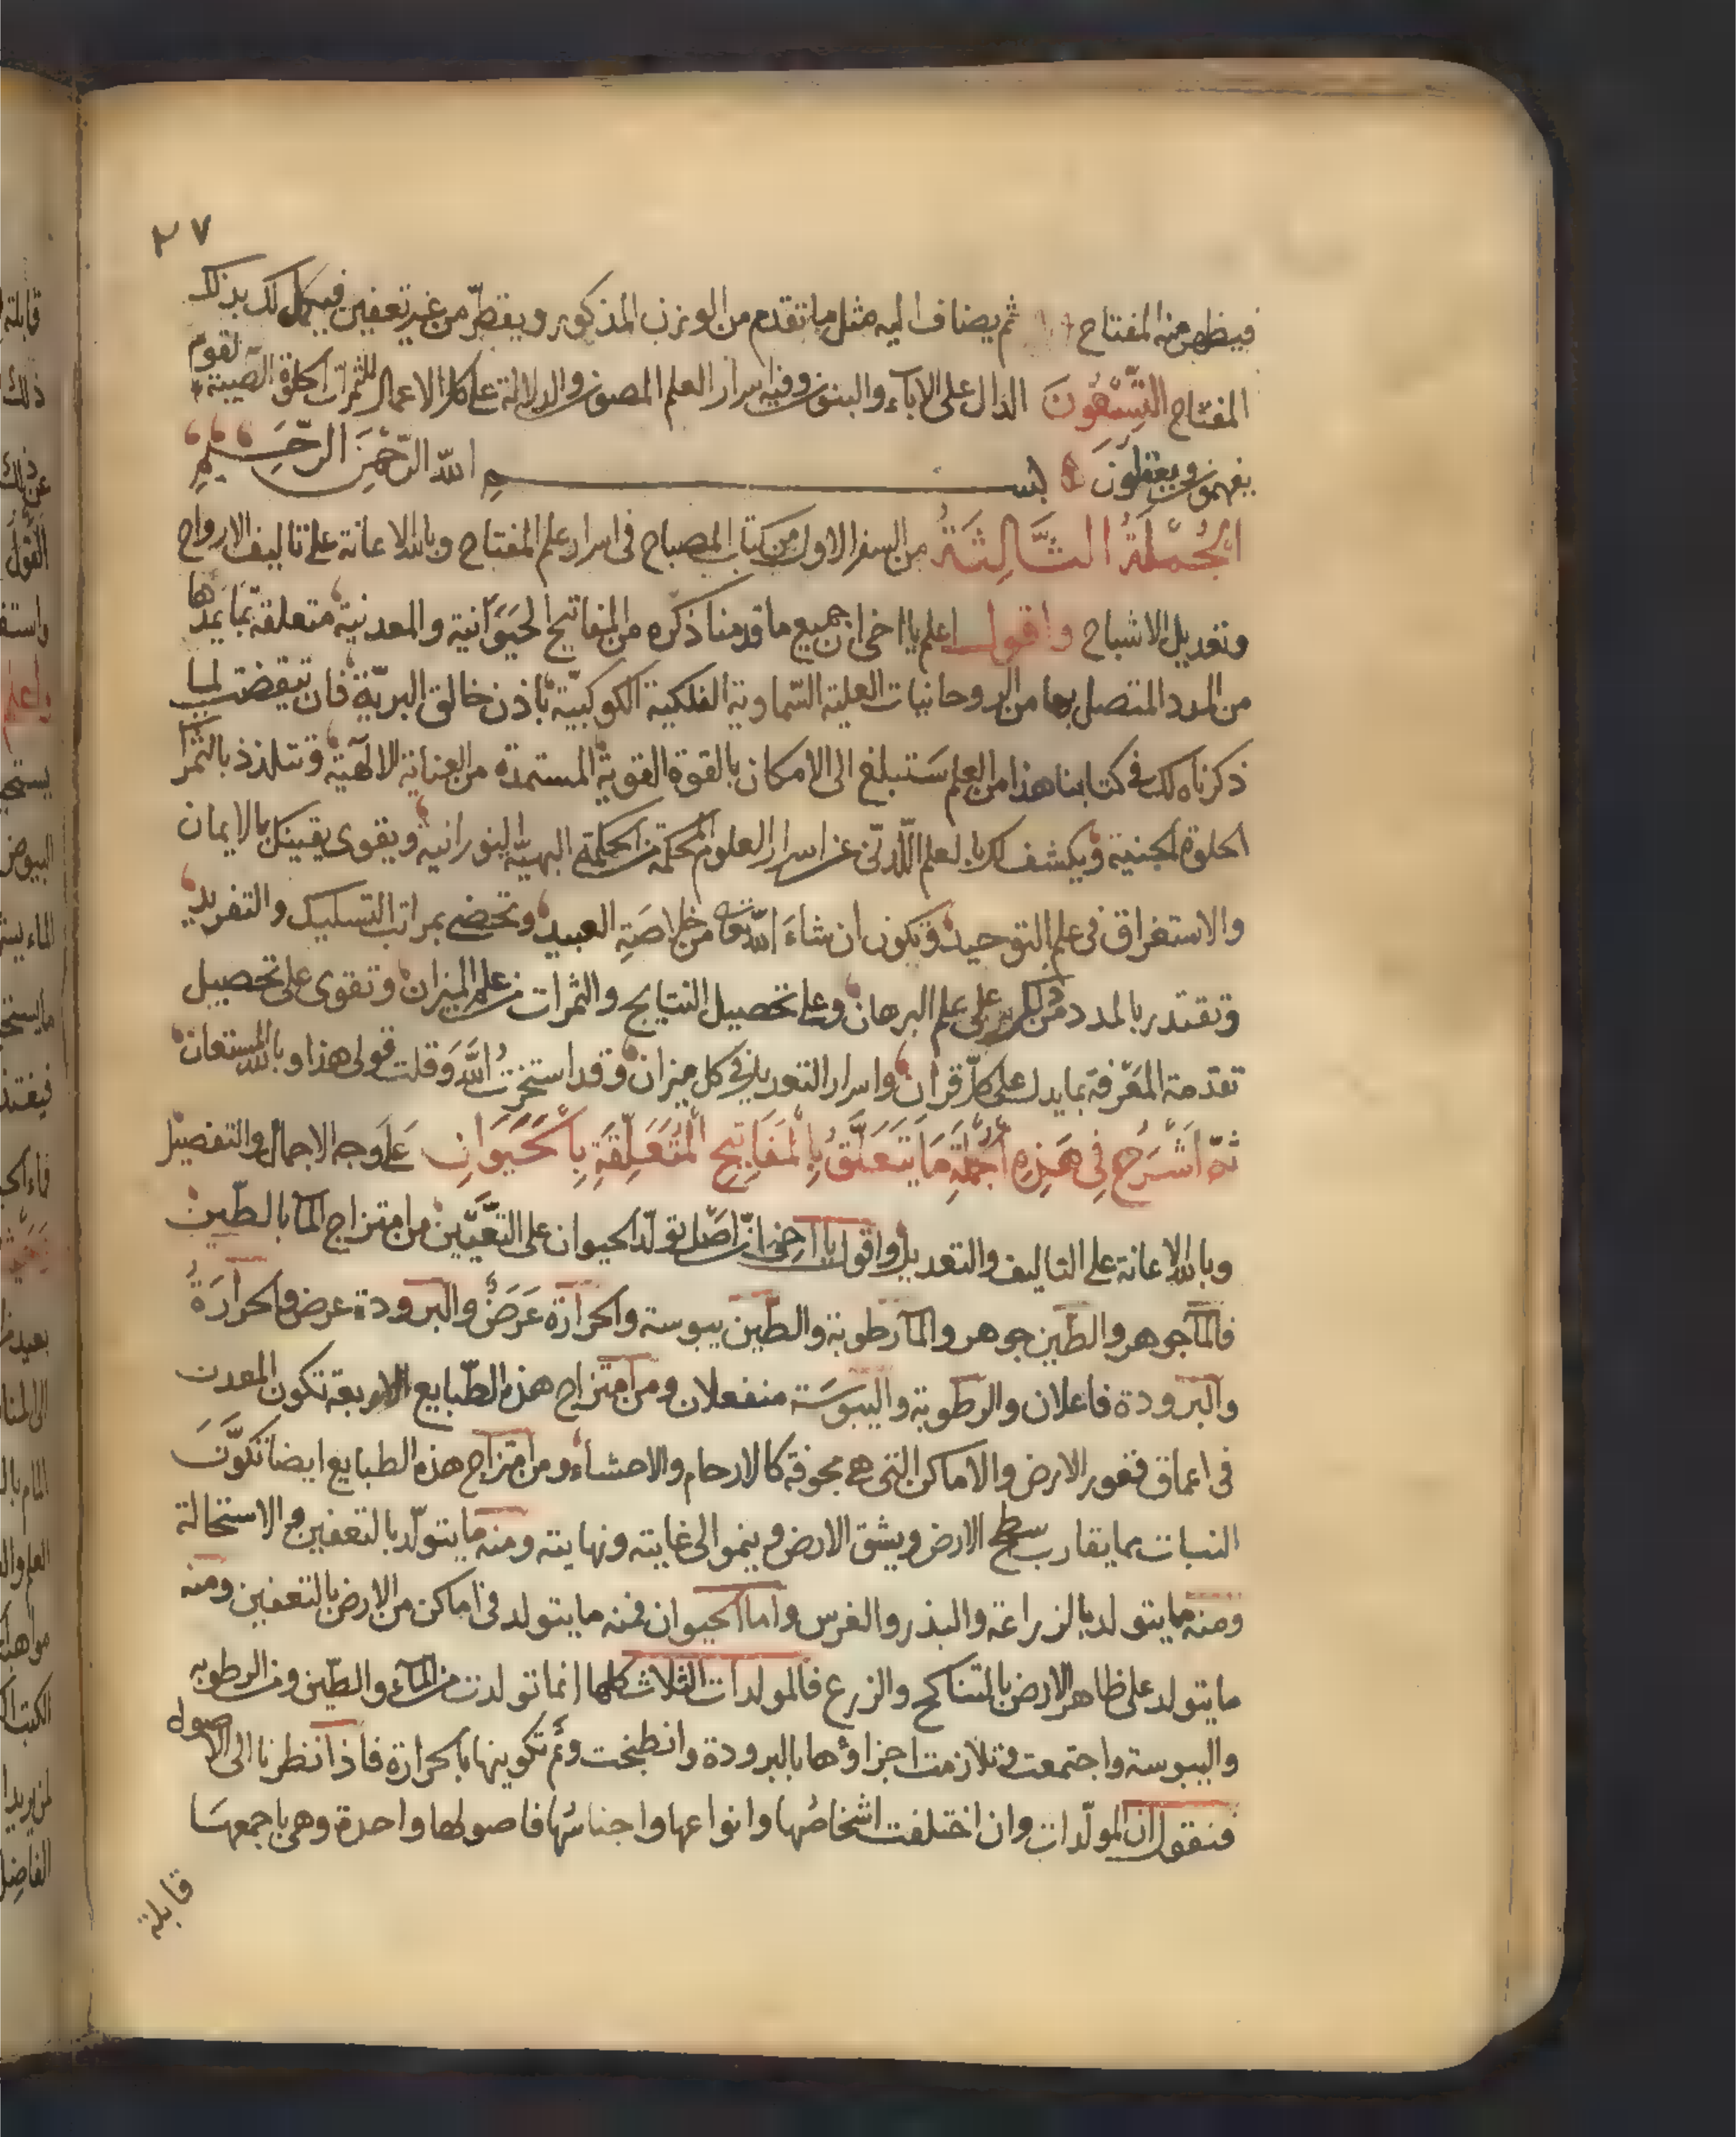 ٢٧
فيظهر منه المفتاح ثم يضاف اليه مثل ما تقدم من الوزن المذكور ويقطر من غير تعفين فيكمل لك بذلك
المفتاح التسعون الدال على الاباء والبنون وفيه اسرار العلم المصون والدلالة على كل الاعمال للثمرات الحلوة الصيبة لقوم
يفهمون ويعقلون بسم الله الرحمن الرحيم
الجملة الثالثة من السفر الاول من كتاب المصباح في اسرار علم المفتاح وبالله الاعانة على تاليف الارواح
وتعديل الاشباح واقول اعلم يا اخي ان جميع ما قدمنا ذكره من المفاتيح الحيوانية والمعدنية متعلقة بما يمدها
من المدد المتصل بها من الروحانيات العلية السماوية الفلكية الكوكبية باذن خالق البرية فان تيقضت لما
ذكرناه لك في كتابنا هذا من العلم ستبلغ الى الامكان بالقوة القوية المستمدة من العناية الالهية وتتلذذ بالثمرا
الحلوة الجنية ويكشف لك بالعلم اللدني عن اسرار العلوم المحكمة من الحكمة البهية النورانية ويقوى يقينك بالايمان
والاستغراق في علم التوحيد وتكون ان شاء الله تعالى من خلاصة العبيد وتحضى بمراتب التسليك والتفريد
وتقتدر بالمدد من الكريم على علم البرهان وعلى تحصيل النتايج والثمرات من علم الميزان وتقوى على تحصيل
تقدمة المعرفة بما يدل على كل قران واسرار التعديل في كل ميزان وقد استخرت الله وقلت قولي هذا وبالله المستعان
ثم اشرح في هذه الجملة ما يتعلق بالمفاتيح المتعلقة بالحيوان على وجه الاجمال والتفصيل
وبالله الاعانة على التاليف والتعديل واقول يا اخي ان اصل تولد الحيوان على التعيين من امتزاج الما بالطين
فالما جوهر والطين جوهر والما رطوبة والطين يبوسة والحرارة عرض والبرودة عرض والحرارة
والبرودة فاعلان والرطوبة واليبوسة منفعلان ومن امتزاج هذه الطبايع الاربعة تكون المعدن
في اعماق قعور الارض والاماكن التي هي مجوفة كالارحام والاحشاء ومن امتزاج هذه الطبايع ايضا تكون
النبات مما يقارب سطح الارض ويشق الارض وينمو الى غايته ونهايته ومنه ما يتولد بالتعفين والاستحالة
ومنه ما يتولد بالزراعة والبذر والغرس واما الحيوان فمنه ما يتولد في اماكن من الارض بالتعفين ومنه
ما يتولد على ظاهر الارض بالتناكح والزرع فالمولدات الثلاث كلها انما تولدت من الماء والطين ومن الرطوبه
واليبوسة واجتمعت وتلازمت اجزاؤها بالبرودة وانطبخت وتم تكوينها بالحرارة فاذا نظرنا الى الاصول
فنقول ان المولدات وان اختلفت اشخاصها وانواعها واجناسها فاصولها واحدة وهي باجمعها
قابلة